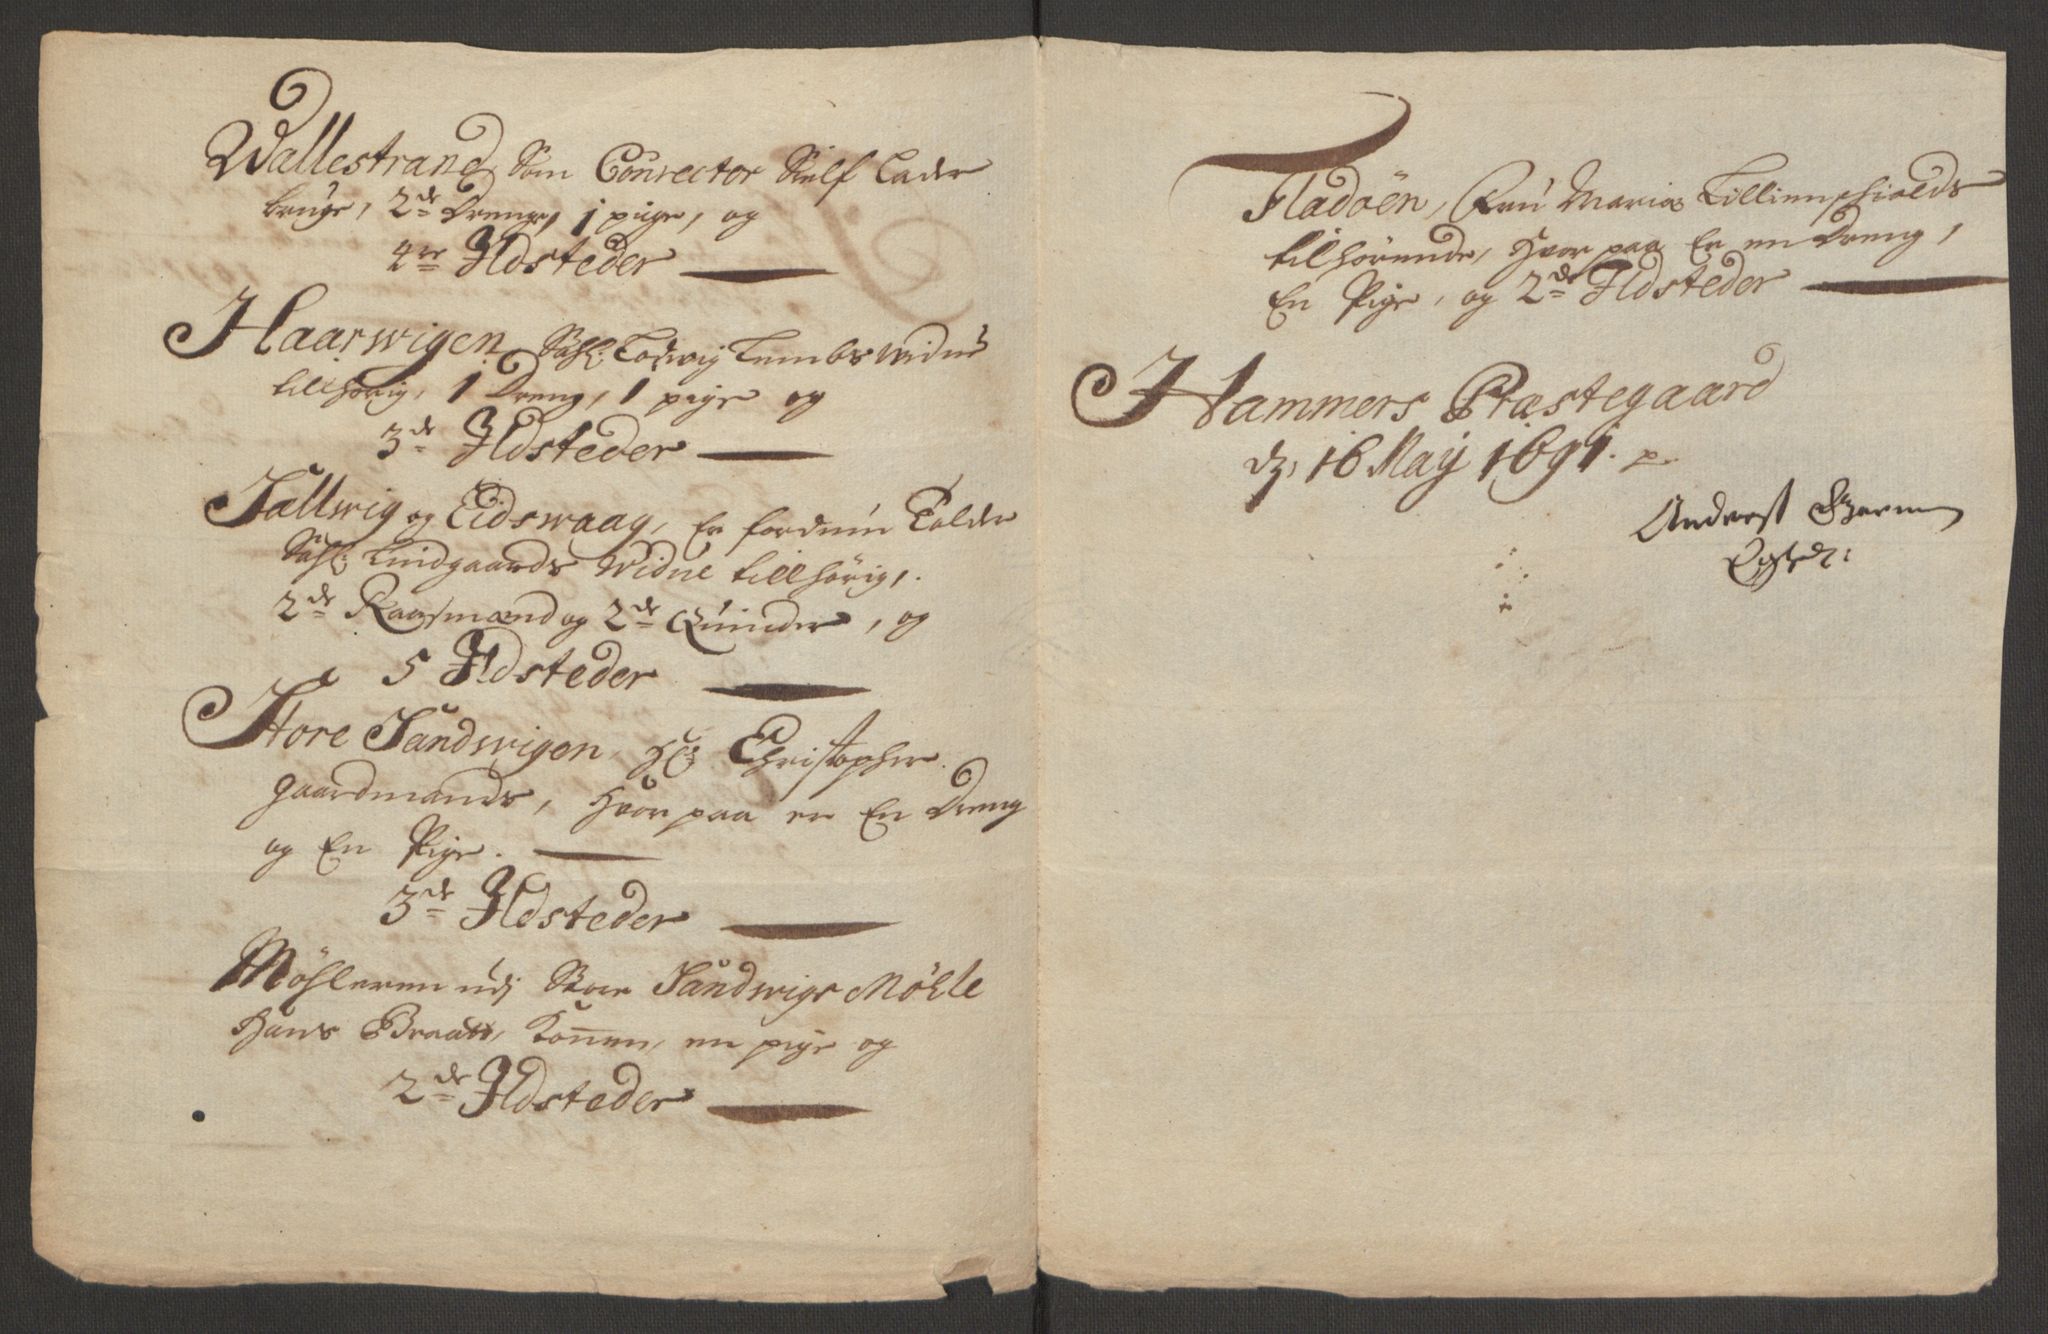 Wallestrand, Som Conrector Sielf Lader
bruge, 2de Drenge, 1 pige, og
4re Ildsteder
Haarwigen, Sahl. Lodwig Lembs widue
tillhörig, 1 Dreng, 1 pige og
3de Ildsteder
Sallwig og Eidswaag, Er fordum Tolder
Sahl. Lindgaards Widue tillhörig,
2de Raasmænd og 2de Quinder, og
5 Ildsteder
Store Sandwigen, Hr. Christopher
gaardmands, Hvor paa er En Dreng
og En Pige.
3de Ildsteder
Möhleren udj Store Sandwigs Möhle
Hans Braatt, Konnen, en pige og
2de Ildsteder
Fladöen, Fru Maria Lillienschiolds
tilhörende, Hvor paa Er en Dreng,
En Pige, og 2de Ildsteder
Hammers Præstegaard
dh. 16 May 1691. p.
Anderss